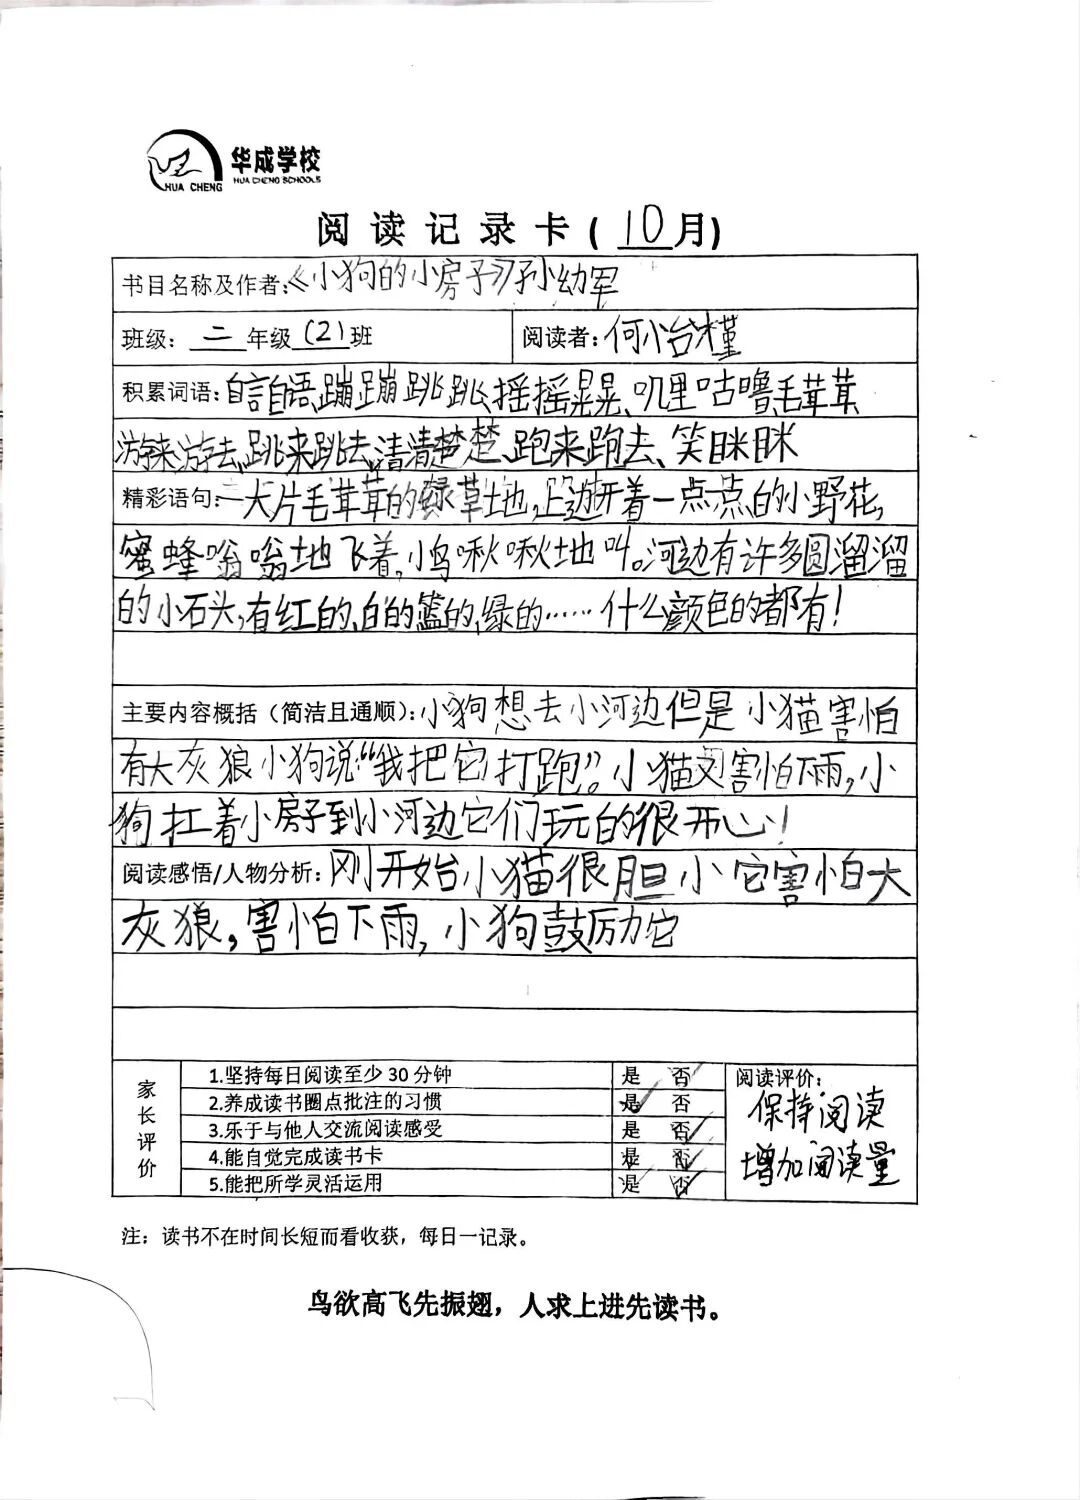 华成学校
HUA CHENG SCHOOLS
HUA CHENG
阅读记录卡(10月)
书目名称及作者:《小狗的小房子》孙幼军
班级:二年级(2)班 阅读者:何小台槿
积累词语:自言自语、蹦蹦跳跳、摇摇晃晃、叽里咕噜、毛茸茸
游来游去、跳来跳去、清清楚楚、跑来跑去、笑眯眯
精彩语句:一大片毛茸茸的绿草地,上边开着一点点的小野花,
蜜蜂嗡嗡地飞着,小鸟啾啾地叫。河边有许多圆溜溜
的小石头,有红的、白的、篮的、绿的……什么颜色的都有!
主要内容概括(简洁且通顺):小狗想去小河边但是小猫害怕
有大灰狼小狗说“我把它打跑”。小猫又害怕下雨,小
狗扛着小房子到小河边它们玩的很开心!
阅读感悟/人物分析:刚开始小猫很胆小它害怕大
灰狼,害怕下雨,小狗鼓厉它
家长评价
1.坚持每日阅读至少30分钟 是 否
2.养成读书圈点批注的习惯 是 否
3.乐于与他人交流阅读感受 是 否
4.能自觉完成读书卡 是 否
5.能把所学灵活运用 是 否
阅读评价:
保持阅读
增加阅读量
注:读书不在时间长短而看收获,每日一记录。
鸟欲高飞先振翅,人求上进先读书。